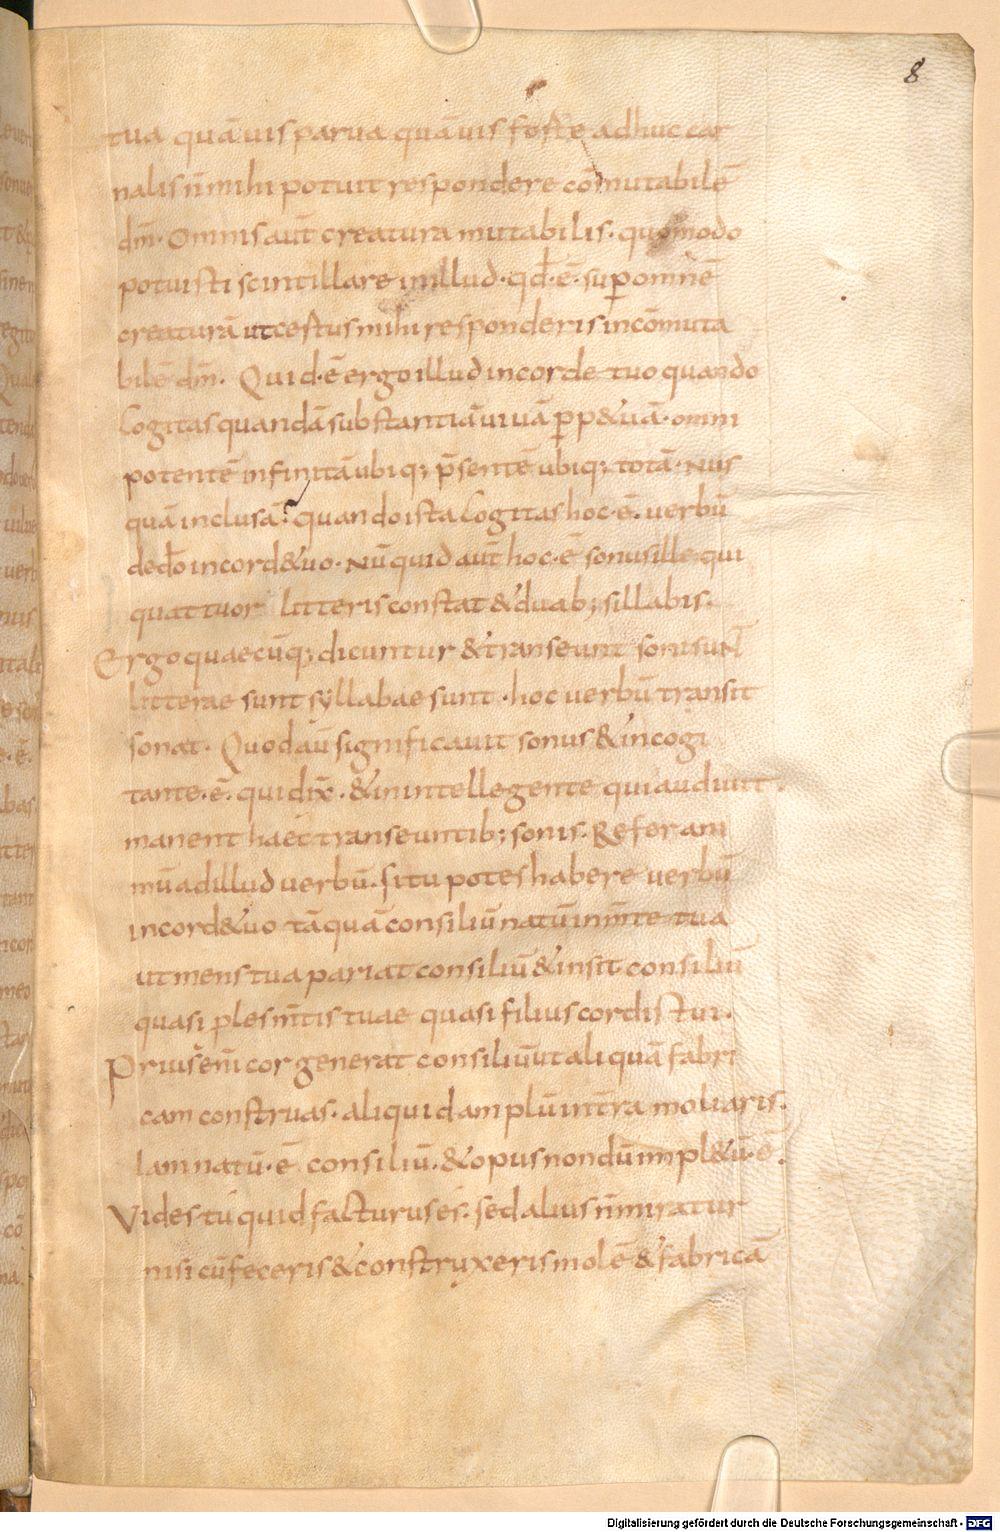 8
tua quāuis parua quāuis fo&te adhuc car
nalis n̄ mihi potuit respondere cōmutabilē
dm̄. Omnis aut̄ creatura mutabilis. quomodo
potuisti scintillare in illud. qđ. ē. sup omnē
creaturā ut certus mihi responderis incōmuta
bilē dm̄. Quid. ē ergo illud in corde tuo quando
cogitas quandā substantiā uiuā ꝑp&uā. omni
potentē infinitā ubiq; p̄sentē ubiq; totā. nus
quā inclusā? quando ista cogitas hoc. ē. uerbū
de do in cord& uo. Nūquid aut̄ hoc. ē sonus ille qui
quattuor litteris constat & duab; sillabis.
Ergo quaecūq; dicuntur & transeunt soni sunt̄
litterae sunt syllabae sunt. hoc uerbū transit
sonat. Quod aū significauit sonus & in cogi
tante. ē. qui dix̄. & in intellegente qui audiuit.
manent haec transeuntib; sonis. Referam
mū ad illud uerbū. si tu potes habere uerbū
in cord& uo tāquā consiliū natū in m̄te tua
ut mens tua pariat consiliū & insit consiliū
quasi ꝓles m̄tis tuae quasi filius cordis tui.
Prius enī cor generat consiliū ut aliquā fabri
cam construas. aliquid amplū in t̄ra moliaris.
Iam natū. ē consiliū. & opus nondū impl&ū. ē.
Vides tu quid facturus es. sed alius n̄ miratur
nisi cū feceris & construxeris molē & fabricā
Digitalisierung gefördert durch die Deutsche Forschungsgemeinschaft - DFG